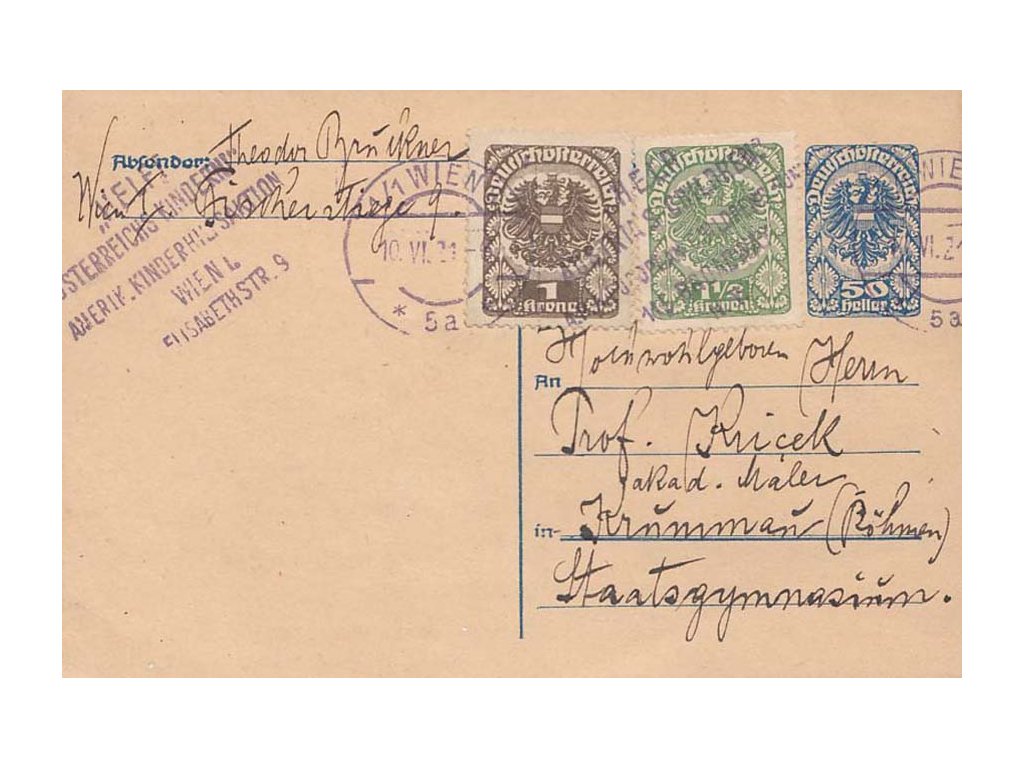 Absender: Theodor Bruckner
Wien I. Fischerstiege 9.
ÖSTERREICHS KINDERN
AMERIK. KINDERHILFSAKTION
WIEN I.
ELISABETHSTR. 9
1/1 WIEN
10. VI. 21
* 5a
Deutschösterreich
1
Krone
Deutschösterreich
1½
Kronen
Deutschösterreich
50
Heller
WIEN
VI. 21
5a
An Hochwohlgeboren Herrn
Prof. Kriček
akad. Maler
in Krummau (Böhmen)
Staatsgymnasium.